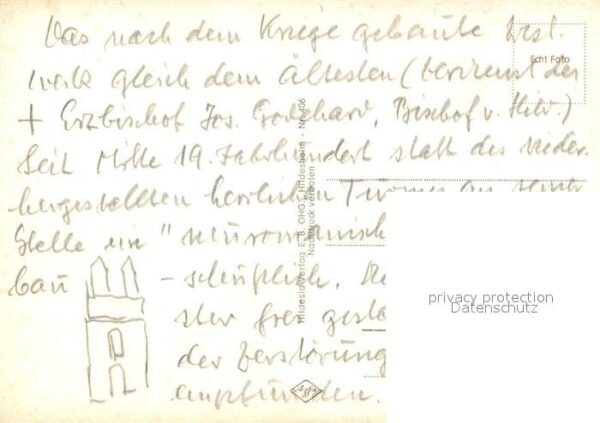 Das nach dem Kriege gebaute West-
werk gleich dem ältesten (Verdienst des
+ Erzbischof Jos. Godehard, Bischof v. Hild.)
Seit Mitte 19. Jahrhundert statt des wieder-
hergestellten herrlichen Turmes an
Stelle ein "neuromanisch
bau - scheußlich.
ster frei
der Zerstörung
empfunden.
Echt Foto
Hildesia-Verlag E. B. OHG., Hildesheim - Nr. 406
Nachdruck verboten
Agfa
privacy protection
Datenschutz